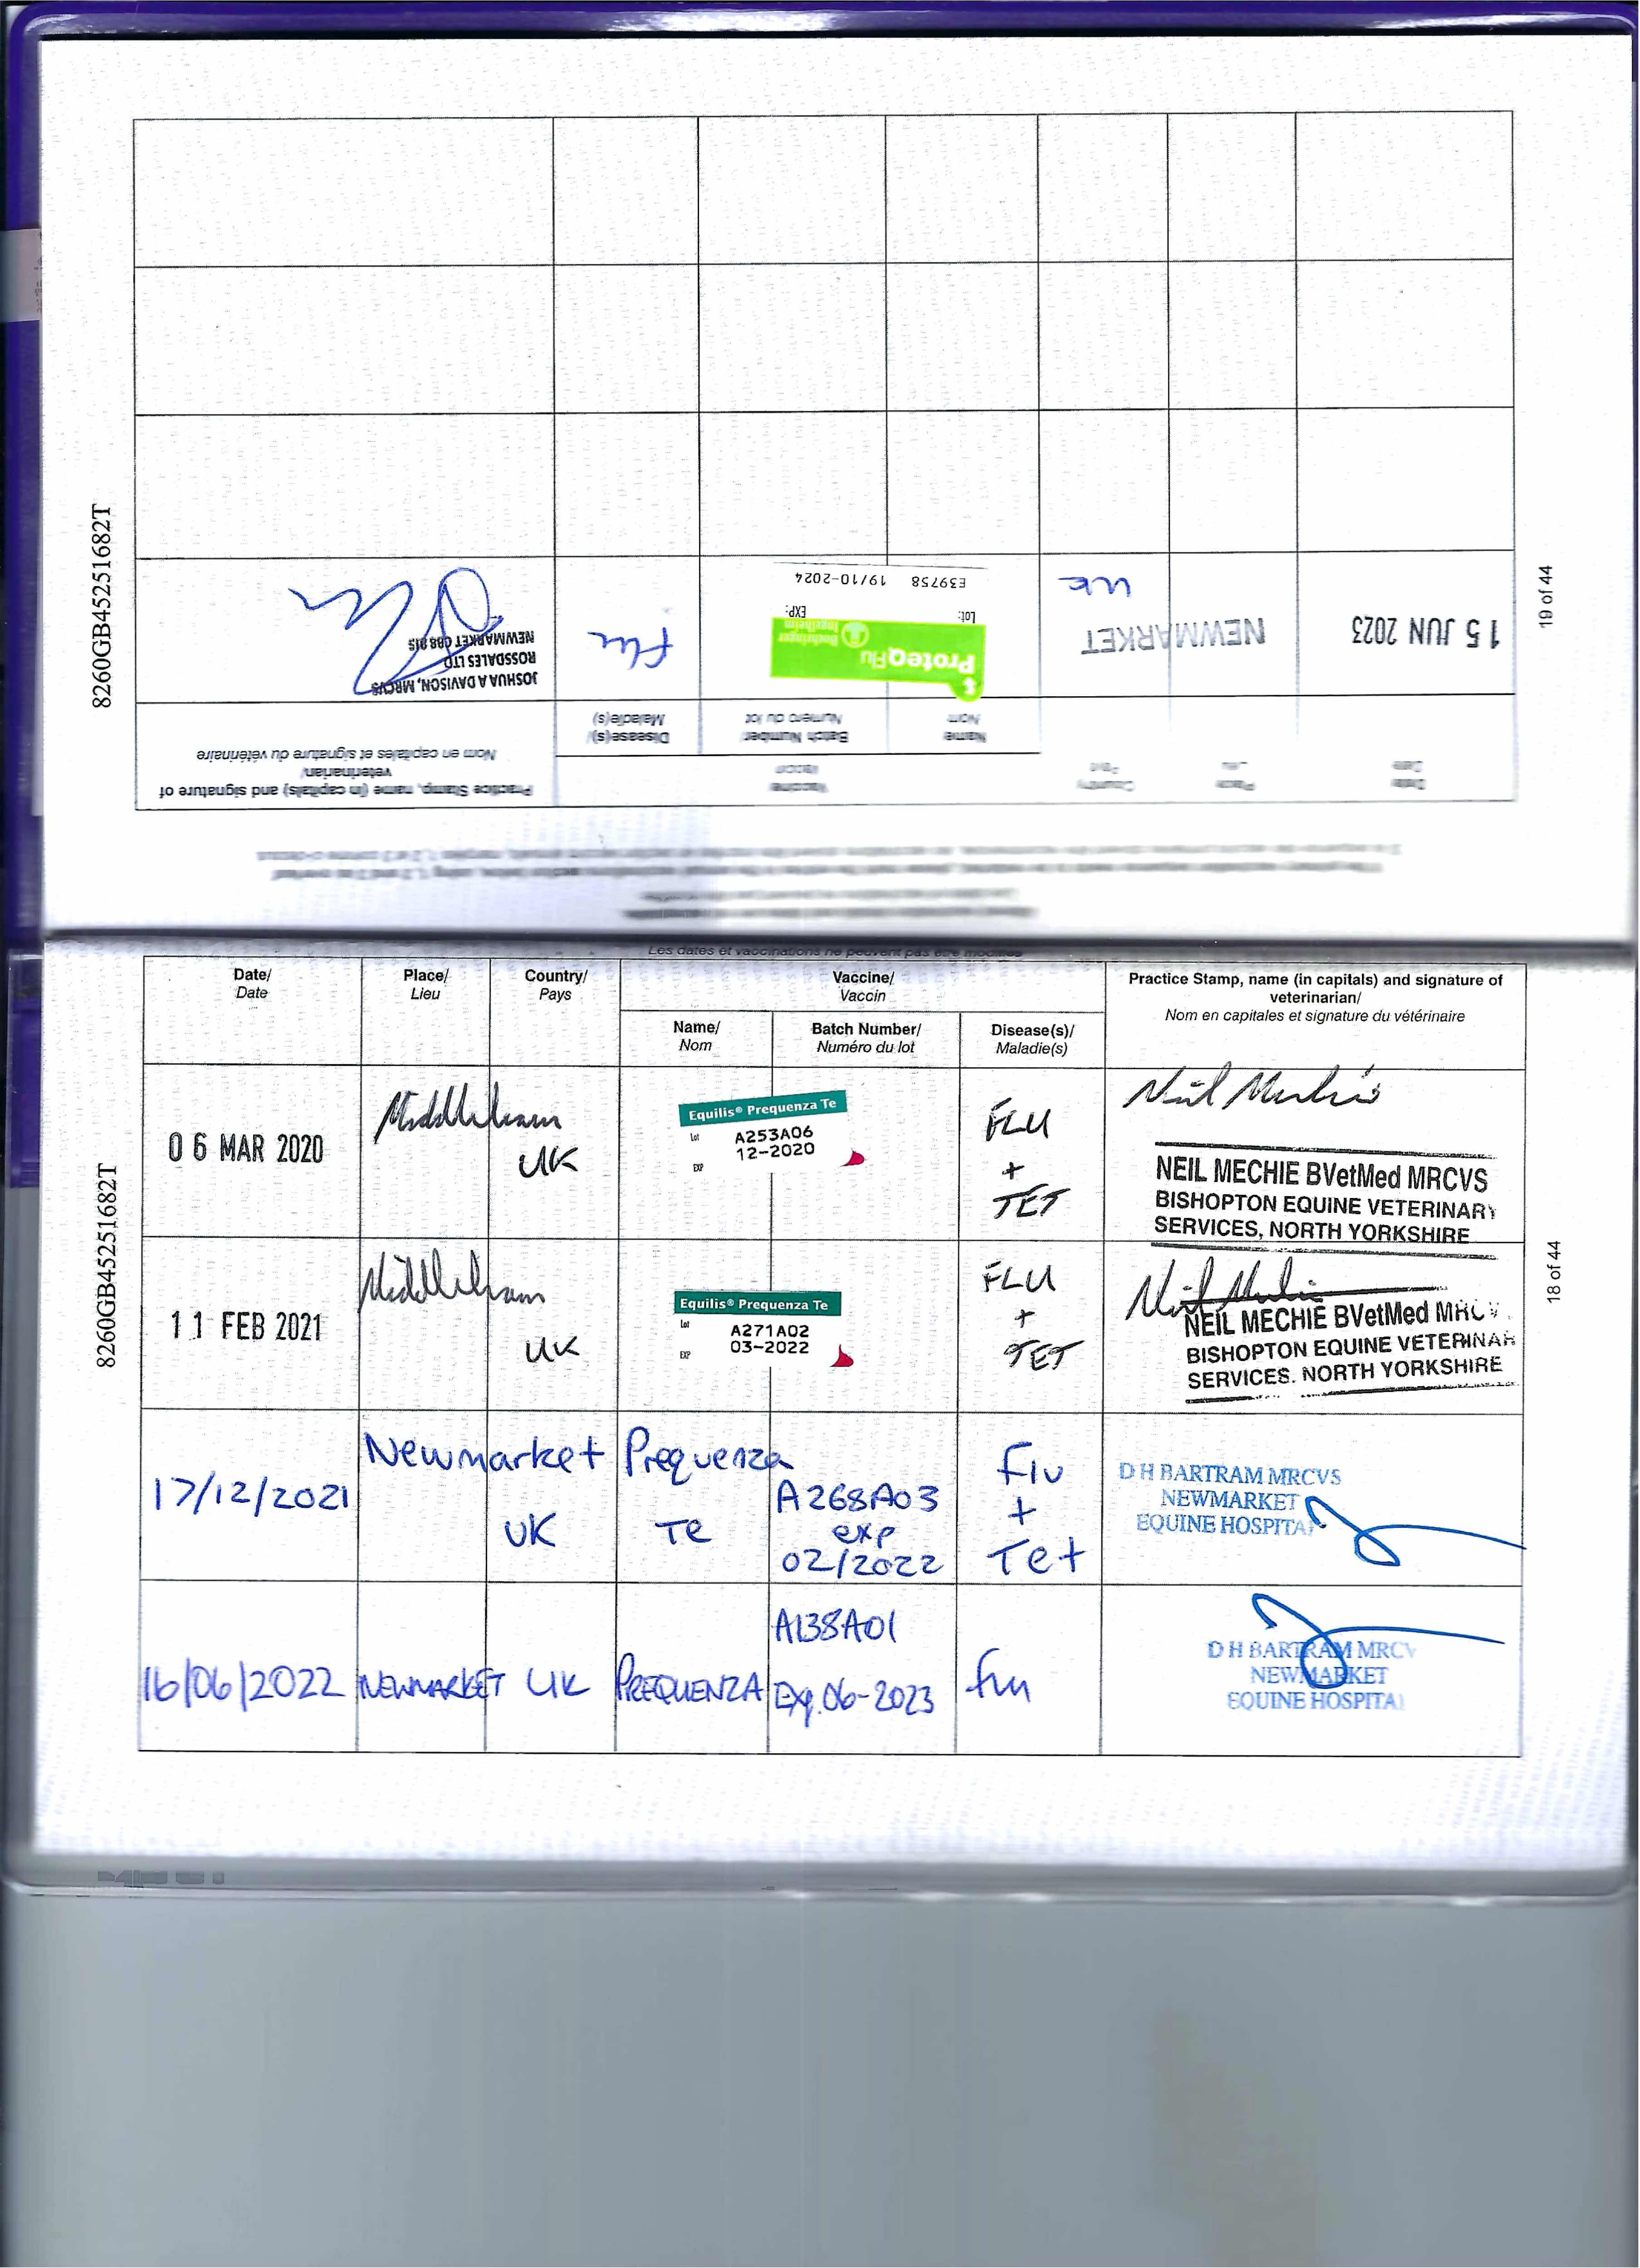 8260GB45251682T
19 of 44
Date
Date
Place
Lieu
Country
Pays
Vaccine
Vaccin
Practice Stamp, name (in capitals) and signature of
veterinarian/
Nom en capitales et signature du vétérinaire
Name
Nom
Batch Number
Numéro du lot
Disease(s)/
Maladie(s)
15 JUN 2023
NEWMARKET
UK
ProteqFlu
Boehringer
Ingelheim
Lot:
EXP:
E39758 19/10-2024
Flu
JOSHUA A DAVISON, MRCVS
ROSSDALES LTD
NEWMARKET
Les dates et vaccinations ne peuvent pas être modifiés
8260GB45251682T
18 of 44
Date/
Date
Place/
Lieu
Country/
Pays
Vaccine/
Vaccin
Practice Stamp, name (in capitals) and signature of
veterinarian/
Nom en capitales et signature du vétérinaire
Name/
Nom
Batch Number/
Numéro du lot
Disease(s)/
Maladie(s)
06 MAR 2020
Middleham
UK
Equilis® Prequenza Te
Lot
A253A06
12-2020
EXP
FLU
+
TET
Neil Mechie
NEIL MECHIE BVetMed MRCVS
BISHOPTON EQUINE VETERINARY
SERVICES, NORTH YORKSHIRE
11 FEB 2021
Middleham
UK
Equilis® Prequenza Te
Lot
A271A02
03-2022
EXP
FLU
+
TET
Neil Mechie
NEIL MECHIE BVetMed MRCV
BISHOPTON EQUINE VETERINAR
SERVICES. NORTH YORKSHIRE
17/12/2021
Newmarket
UK
Prequenza
Te
A268A03
exp
02/2022
Flu
+
Tet
D H BARTRAM MRCVS
NEWMARKET
EQUINE HOSPITAL
16/06/2022
NEWMARKET
UK
PREQUENZA
A138A01
Exp.06-2023
Flu
D H BARTRAM MRCV
NEWMARKET
EQUINE HOSPITAL